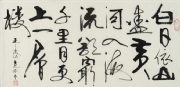 白日依山
盡黄
河入海
流欲窮
千里目更
上一層
樓